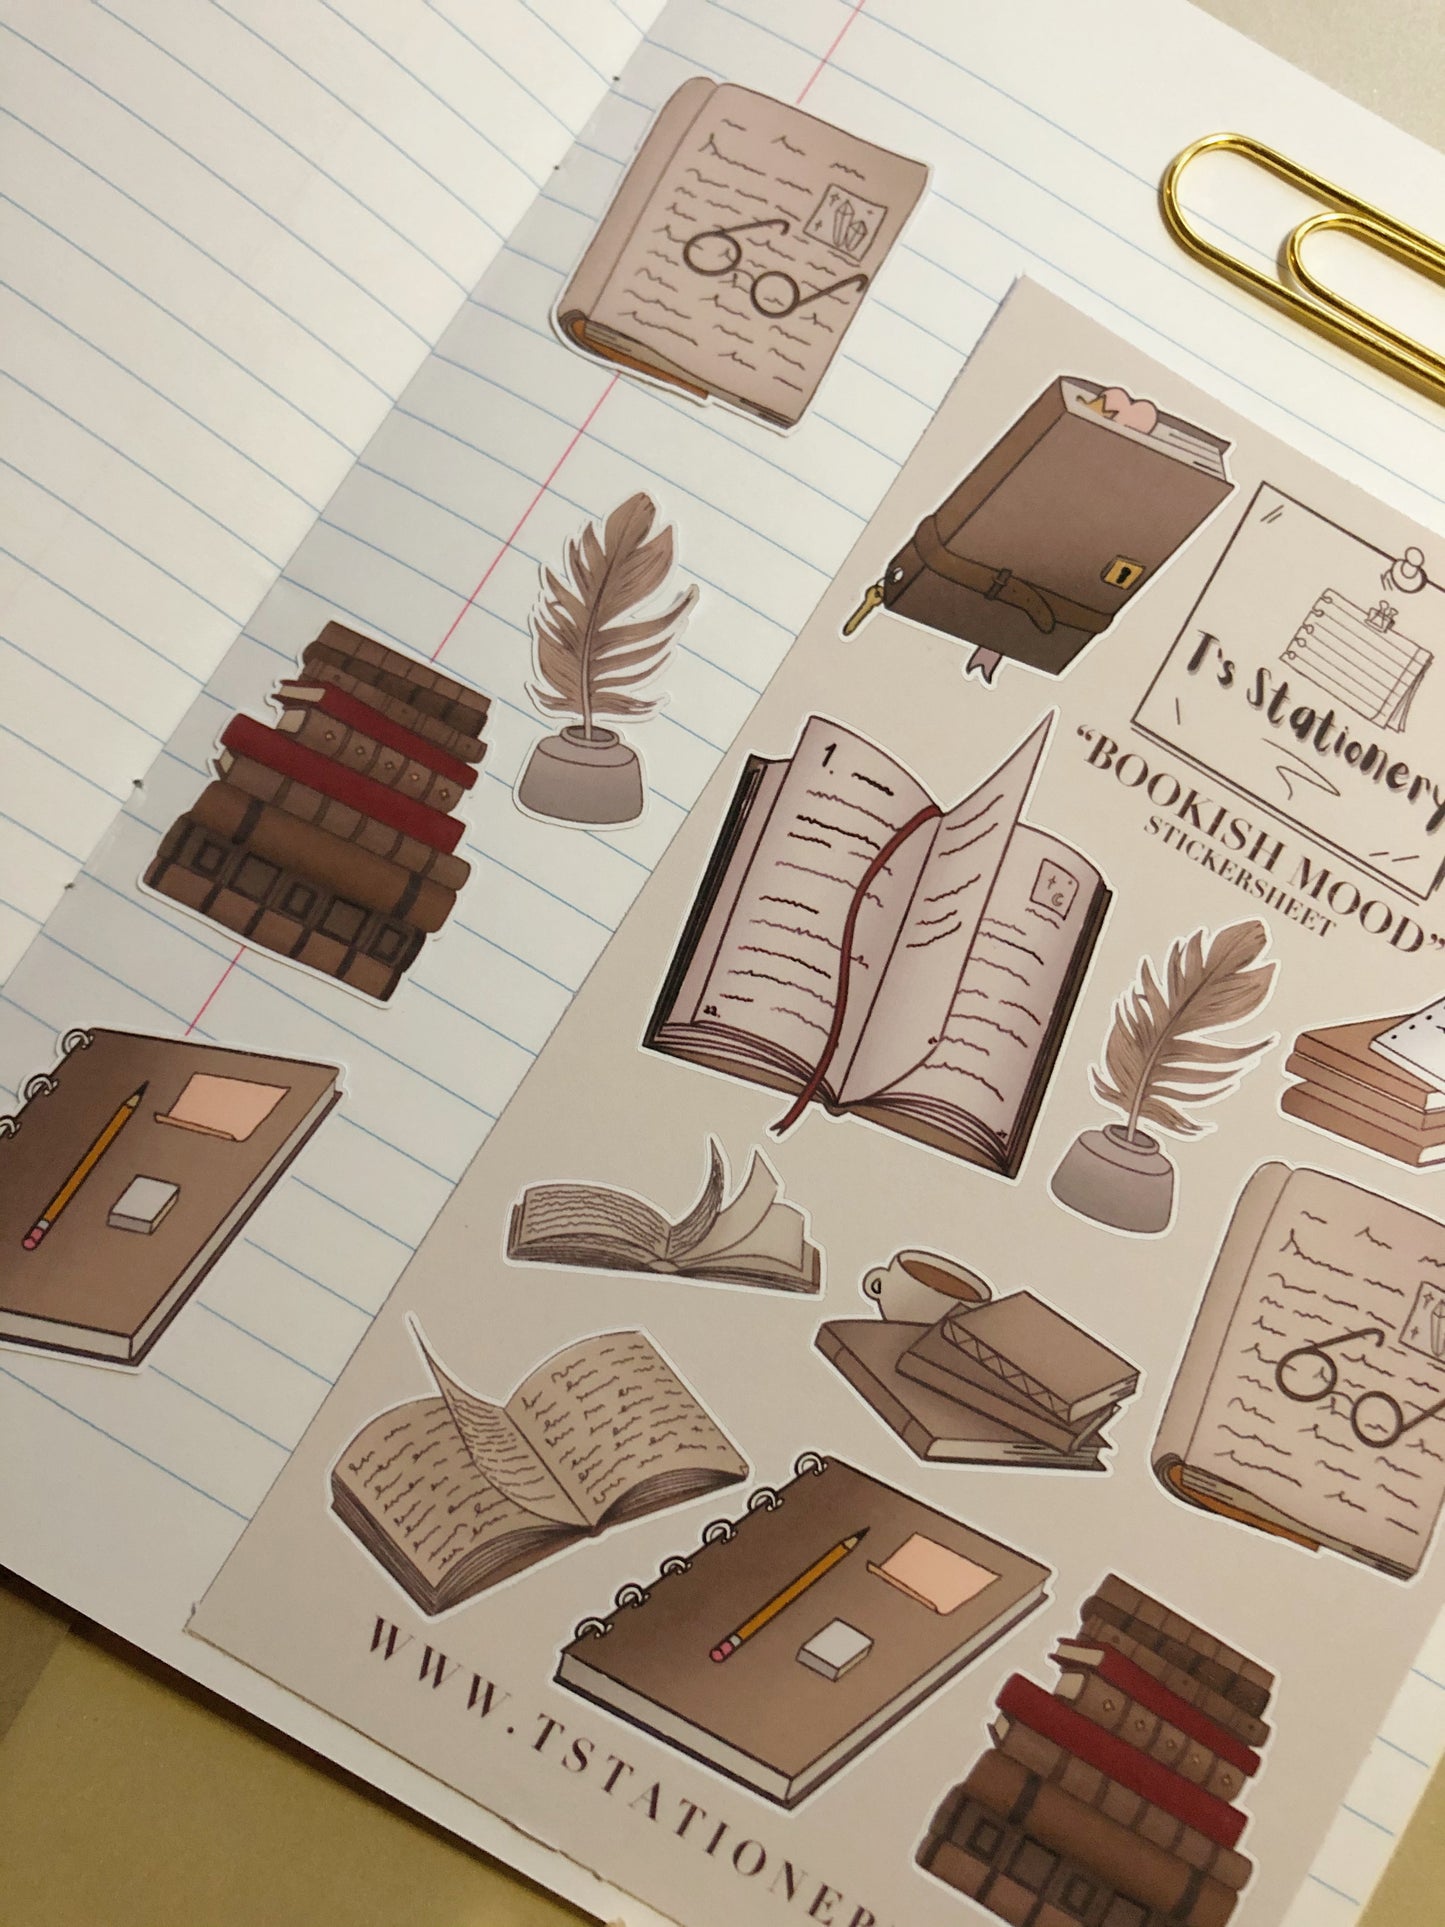 T's Stationery
"BOOKISH MOOD"
STICKERSHEET
1.
22.
WWW.TSTATIONER